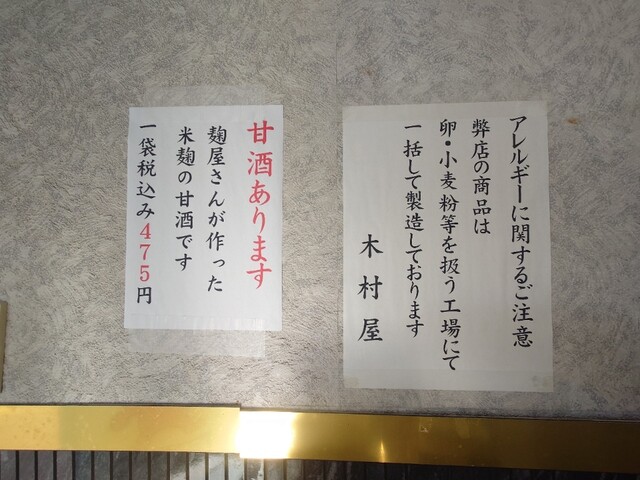 アレルギーに関するご注意
弊店の商品は
卵・小麦粉等を扱う工場にて
一括して製造しております
木村屋
甘酒あります
麹屋さんが作った
米麹の甘酒です
一袋税込み475円